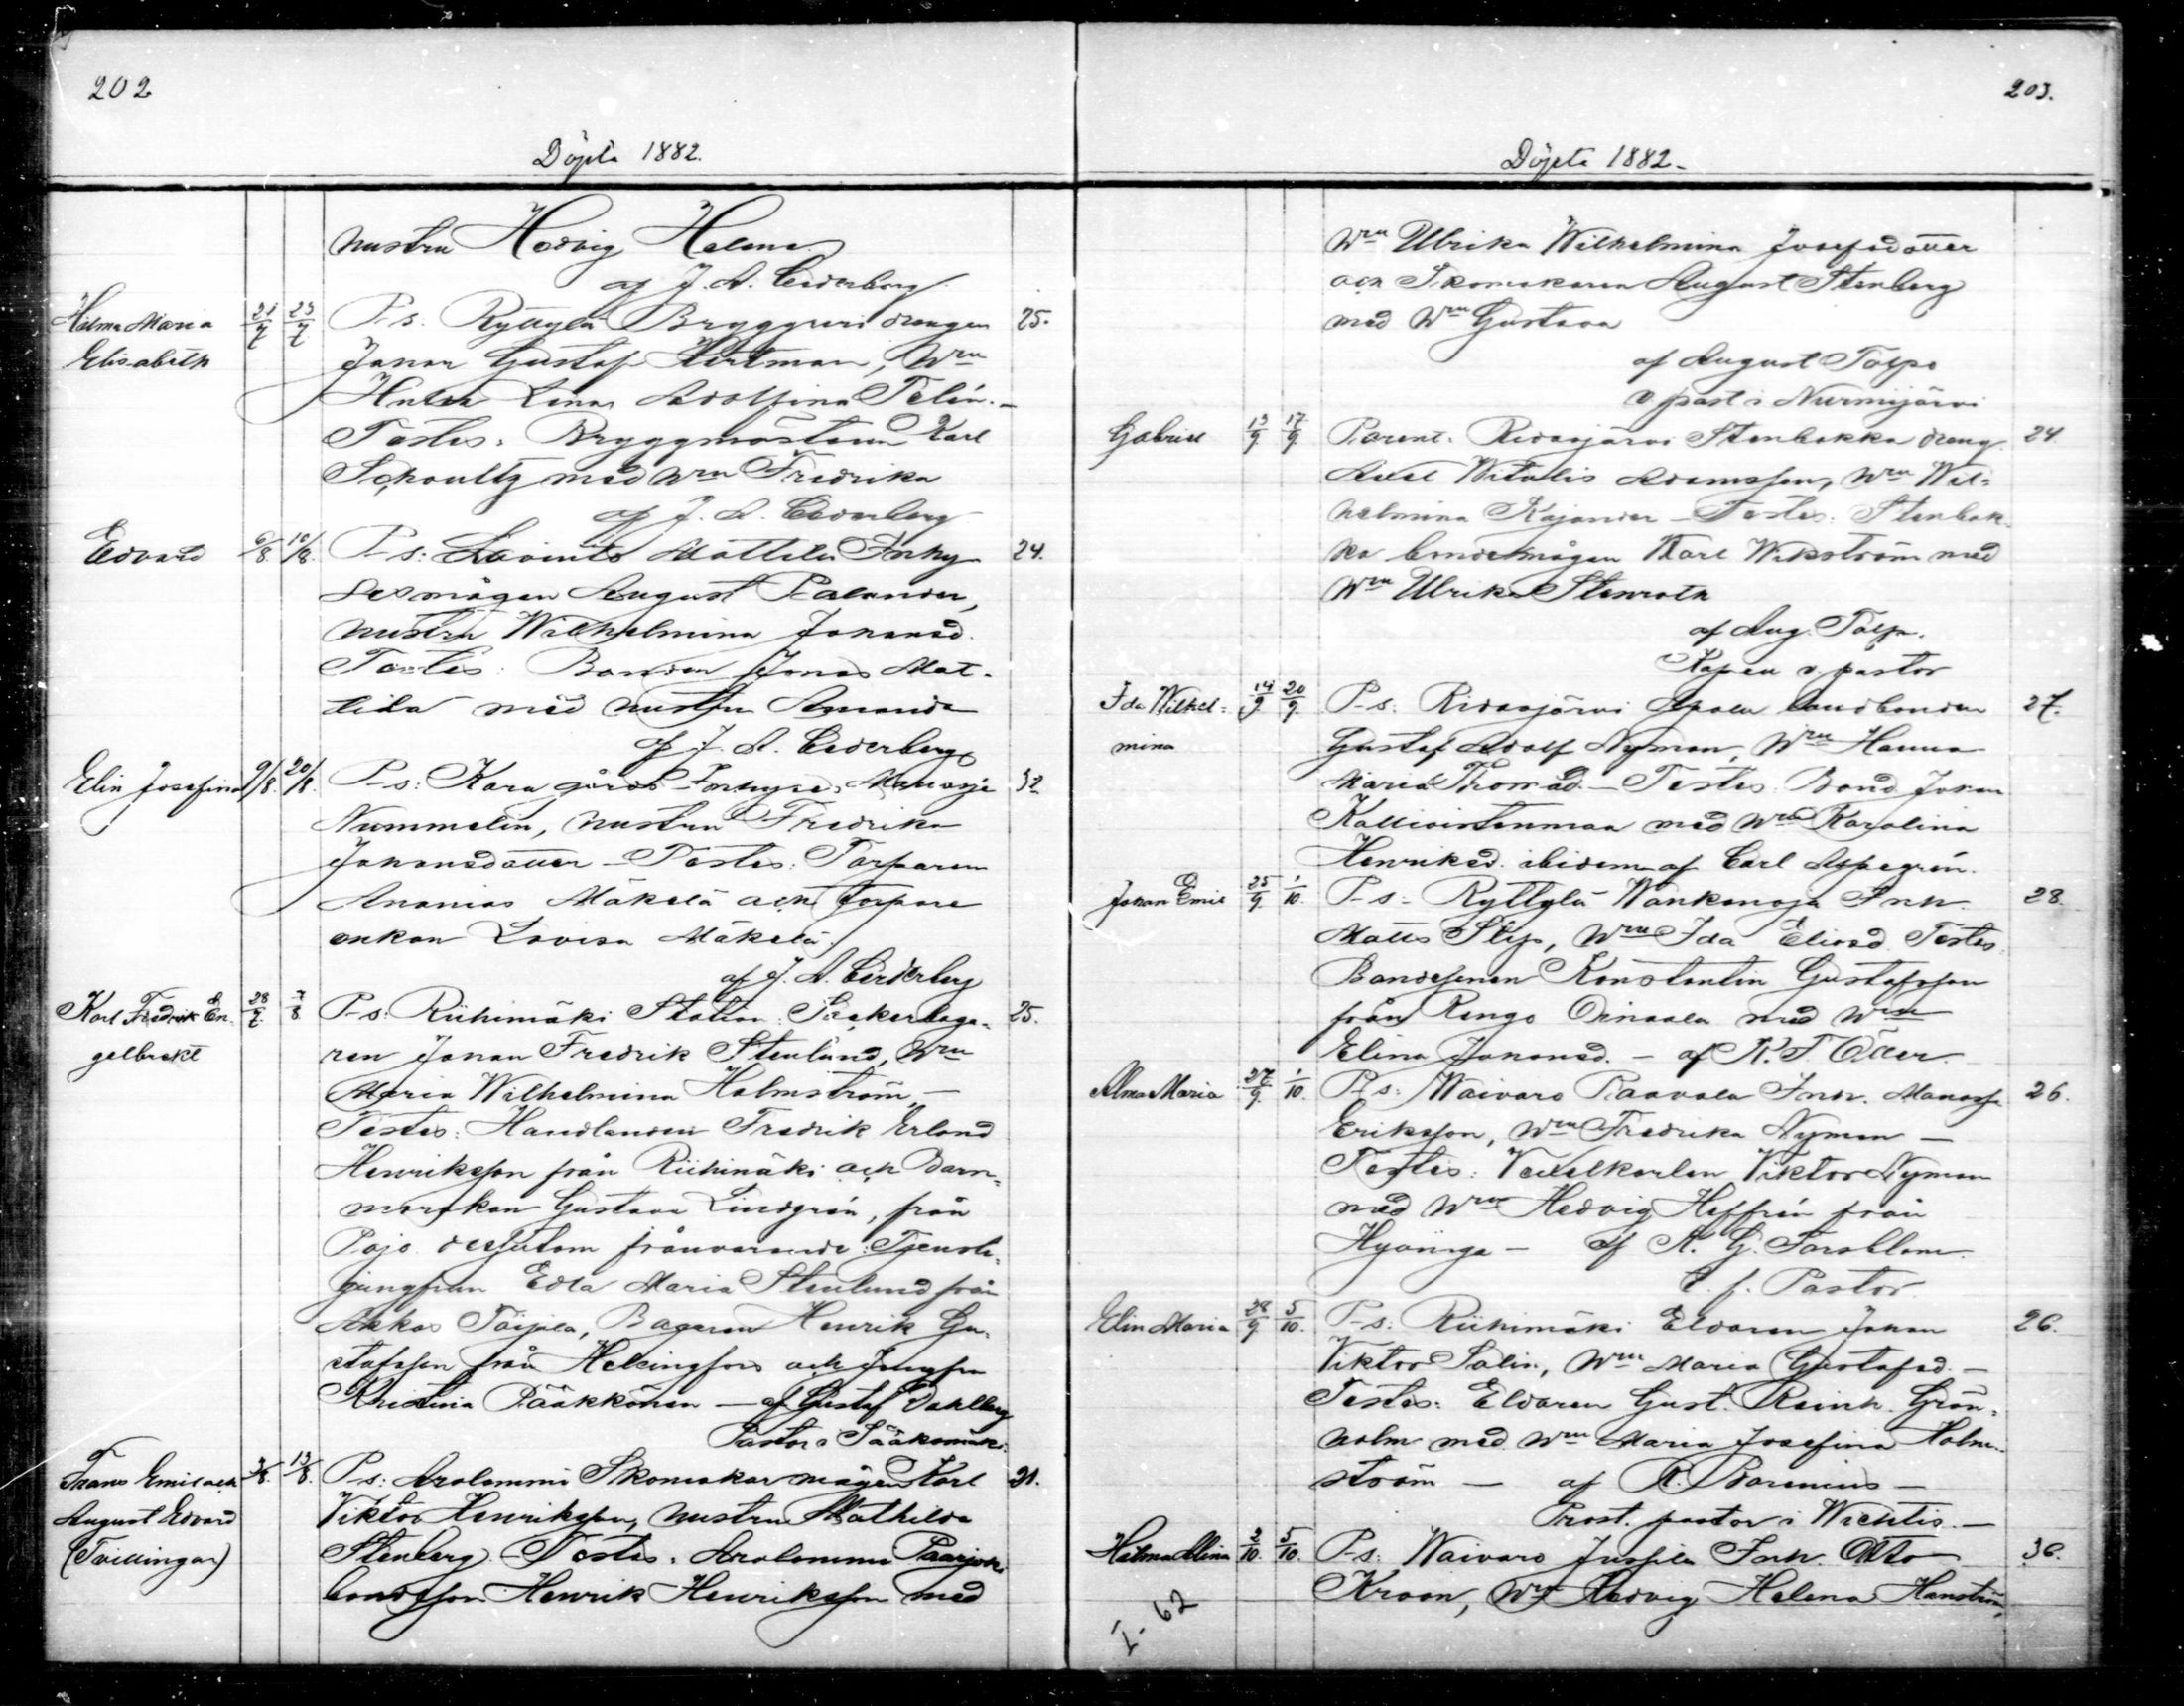 202
Döpta 1882.
hustru Hedvig Helena
af J. A. Cederberg
Hilma Maria 21/7 23/7 P-s. Ryttylä Bryggeri drengen 25.
Elisabeth Johan Gustaf Hertman, Wru
Hulda Lina Adolfina Telén. –
Testes: Bryggmästaren Karl
Schoultz med Wru Fredrika
af J. A. Cederberg
Edvard 6/8 10/8 P-s: Mattila Inhy- 24.
sesmågen August Palander,
hustru Wilhelmina Johansd.
Testes: Bonden Jonas Mat-
tila med hustru Amanda
af J. A. Cederberg
Elin Josefina 9/8 20/8 P-s: Kara gårds Inhyses Manasse 32
Nummelin, hustru Fredrika
Johansdotter – Testes: Torparen
Ananias Mäkelä och torpare
enkan Lovisa Mäkelä.
af J. A. Cederberg
Karl Fredrik En- 28/7 7/8 P-s: Riihimäki Station: Sockerbaga- 25.
gelbrekt ren Johan Fredrik Stenlund, Wru
Maria Wilhelmina Holmström –
Testes: Handlanden Fredrik Erland
Henriksson från Riihimäki och Barn-
morskan Gustava Lindgrén, från
Pojo dessutom frånvarande: Tjenste-
jungfrun Edla Maria Stenlund från
Akkas Toijala, Bagaren Henrik Gu-
stafsson från Helsingfors och Jungfru
Kristina Pääkkönen – af Gustaf Dahlberg
Pastor i Sääksmäki.
Frans Emil och 3/8 13/8 P-s: Arolammi Skomakar mågen Karl 21.
August Edvard Viktor Henriksson, hustru Mathilda
(Tvillingar) Stenberg. – Testes: Arolammi Paarjoki
bondsson Henrik Henriksson med
203.
Döpta 1882 –
Wru Ulrika Wilhelmina Josefsdotter
och Skomakaren August Stenberg
med Wru Gustava
af August Tolpo
v past i Nurmijärvi
Gabriel 13/9 17/9 Parent: Ridasjärvi Stenbakka dreng 24.
Axel Witalis Adamsson, Wru Wil-
helmina Kajander – Testes: Stenbak-
ka bondemågen Karl Wikström med
Wru Ulrika Stenroth
af Aug. Tolpo.
Kapen v pastor
Ida Wilhel- 14/9 20/9 P-s: Ridasjärvi landbonden 27.
mina Gustaf Adolf Nyman, Wru Hanna
Maria Thomasd. – Testes Bond. Johan
Kallioistenmaa med Wru Karolina
Henriksd. ibidem af Carl Aspegrén.
Johan Emil 25/9 1/10 P-s: Ryttylä Wankanoja Inh. 28.
Matts Wru Ida Eliasd. Testes
Bondesonen Konstantin Gustafsson
från Rengo Oinaala med Wru
Elina Johansd. – af K. F.
Alma Maria 27/9 1/10 P-s: Waivaro Paavola Inh. Manasse 26.
Eriksson, Wru Fredrika Nyman –
Testes: Vexelkarlen Viktor Nyman
med Wru Hedvig Heffrén från
Hyvinge – af K. G. Forsblom.
t. f. Pastor.
Elin Maria 28/9 5/10 P-s: Riihimäki Eldaren Johan 26.
Viktor Salin, Wru Maria Gustafsd. –
Testes: Eldaren Gust. Reinh. Grön-
holm med Wru Maria Josefina Holm-
ström – af K. Borenius –
Prost. pastor i Wichtis. –
Hilma Alina 2/10 5/10 P-s: Waivaro Jussila Inh. Otto 36.
Kroon, Wru Hedvig Helena Hanström,
I. 62